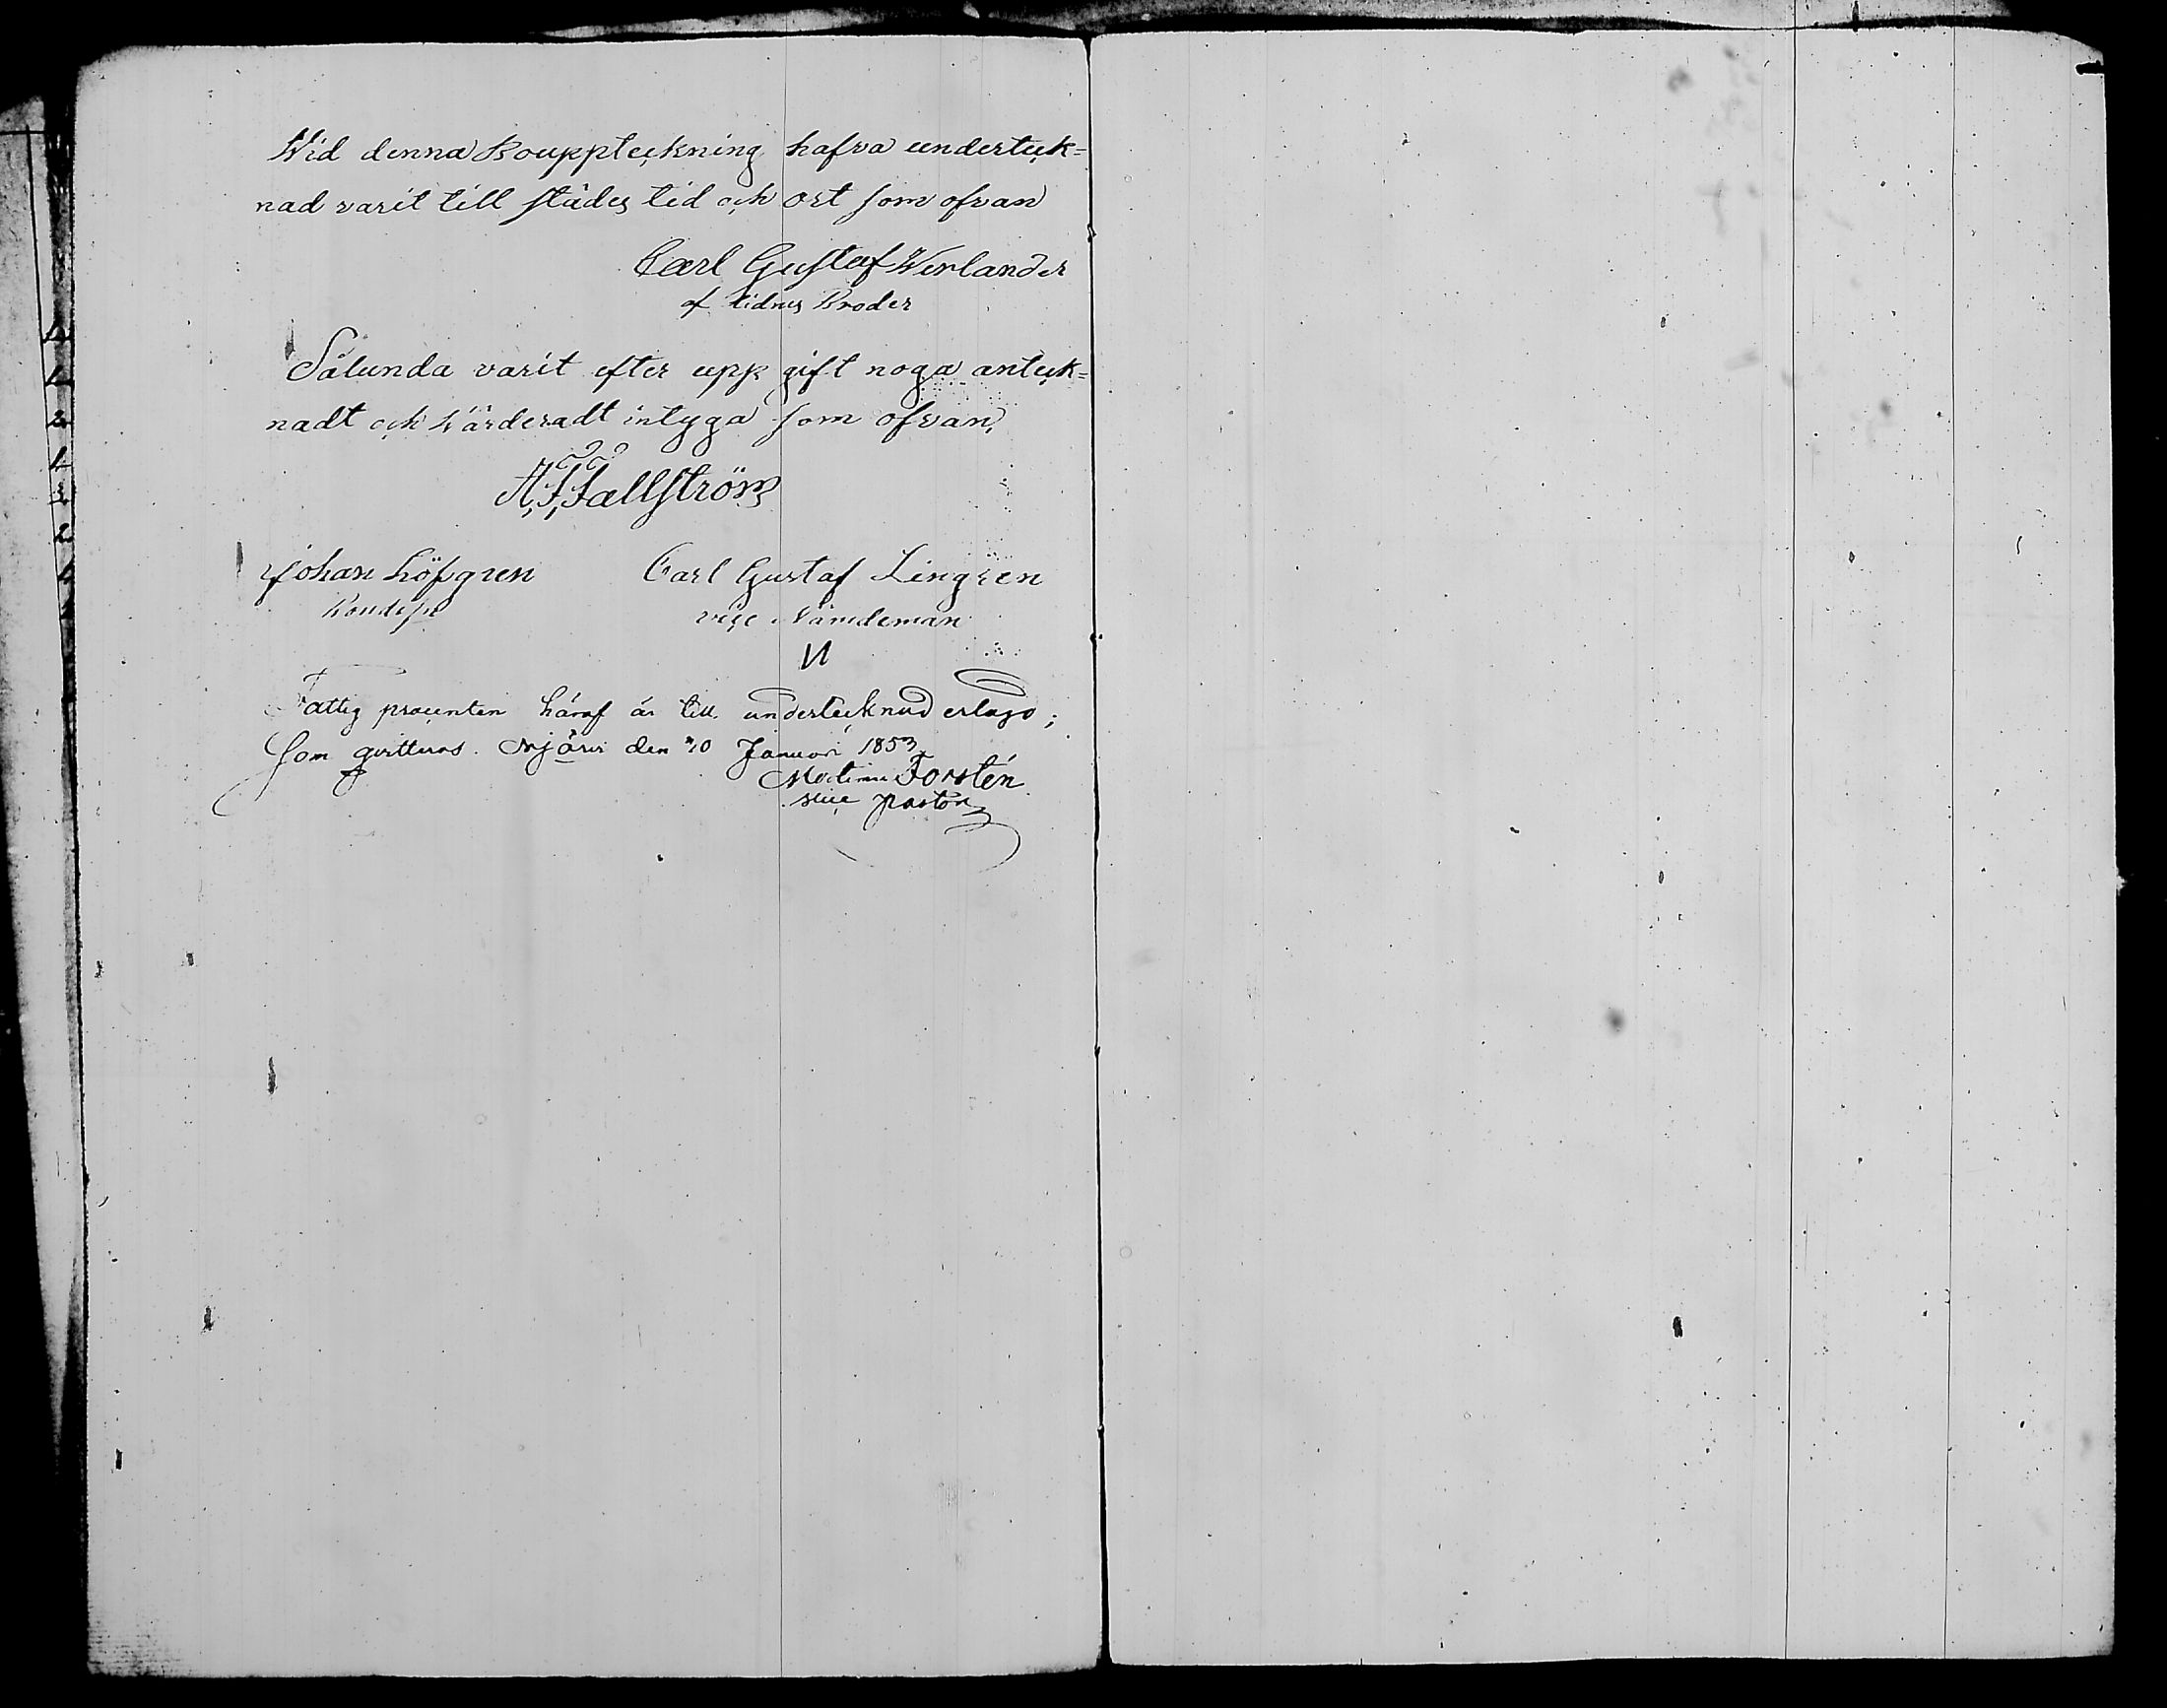 Wid denna Bouppteckning hafva underteck=
nad varit till städes tid och ort som ofvan
Carl Gustaf Werlander
aflidnes Broder
Sålunda varit efter upp gift noga anteck=
nadt och värderadt intyga som ofvan,
A, F, Fællström
Johan Löfgren Carl Gustaf Lingren
Bondeson vice Nämdeman
Fattig procenten häraf är till undertecknad erlagd;
Som qvitteras. den 20 Januari 1853
Forstén
vice pastor